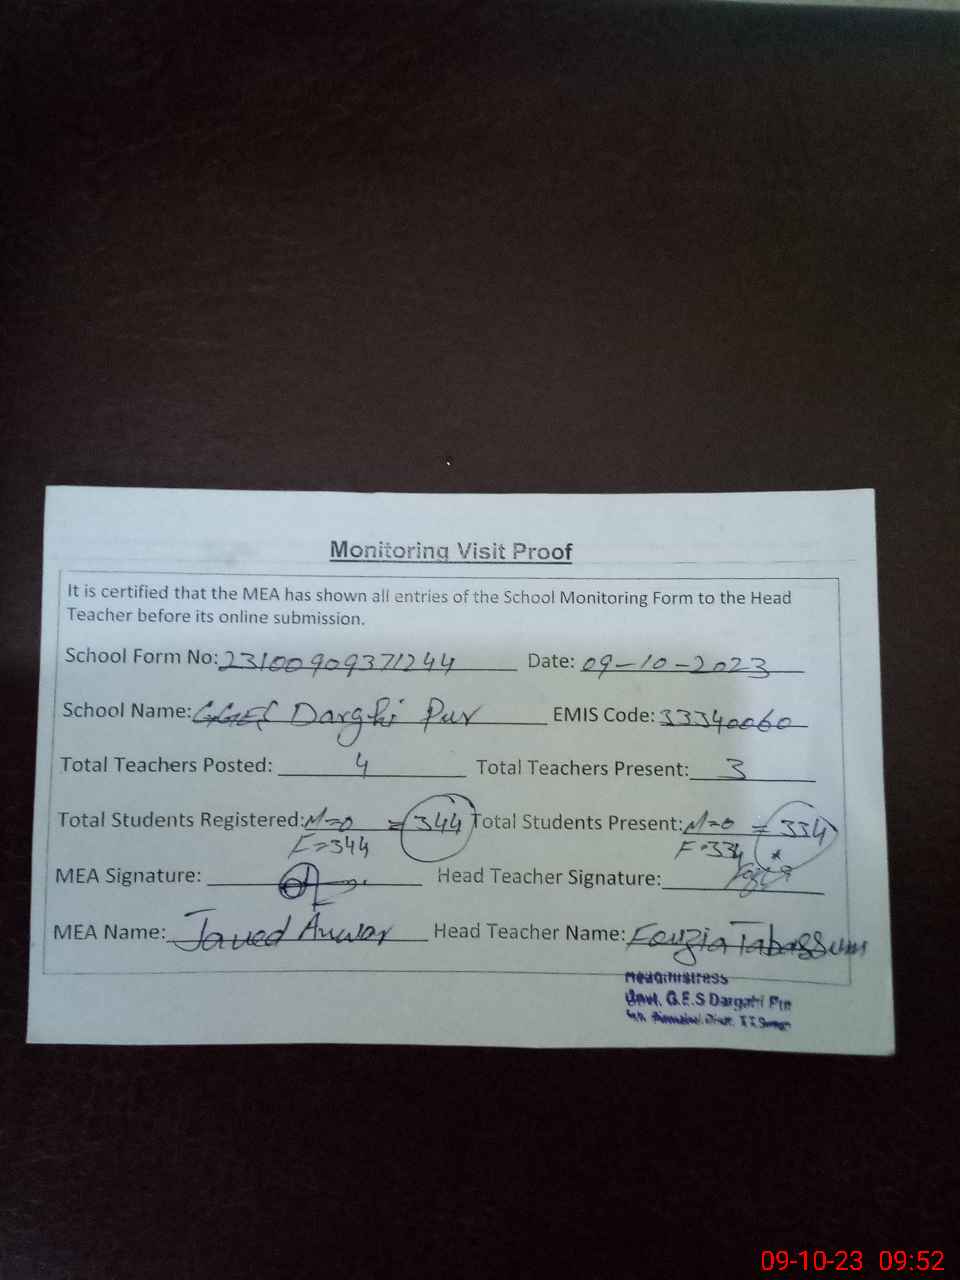 Monitoring Visit Proof
It is certified that the MEA has shown all entries of the School Monitoring Form to the Head
Teacher before its online submission.
School Form No: 23100909371244 Date: 09-10-2023
School Name: GGES Darghi Pur EMIS Code: 33340060
Total Teachers Posted: 4 Total Teachers Present: 3
Total Students Registered: M=0 = 344 Total Students Present: M=0 = 334
F=344 F=334
MEA Signature: Head Teacher Signature:
MEA Name: Javed Anwar Head Teacher Name: Fouzia Tabassum
Headmistress
Govt. G.E.S Dargahi Pur
09-10-23 09:52